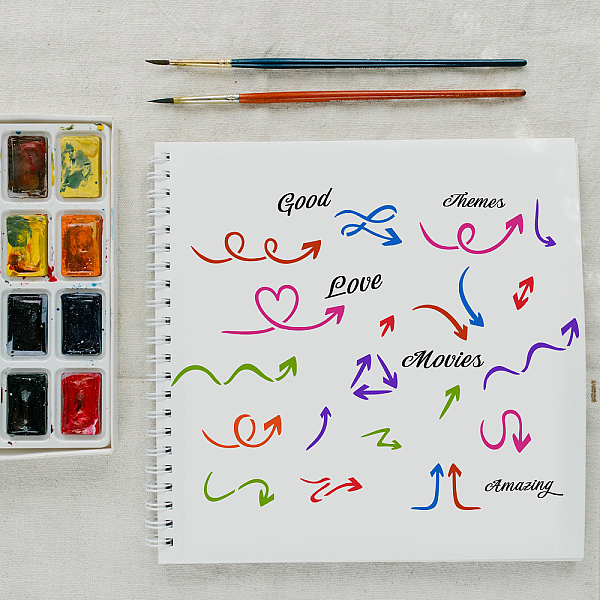 Good
Themes
Love
Movies
Amazing